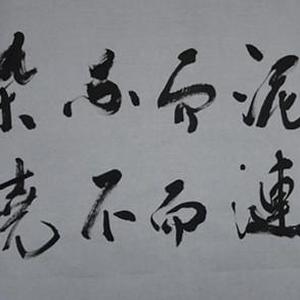 泥而不染
漣而不